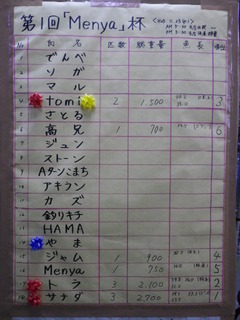 第1回「Menya」杯
No 氏名 匹数 総重量 全長 順位
1 でんべ
2 ソガ
3 マル
4 tomi 2 1,500 3
5 さとる
6 高兄 1 700 6
7 ジュン
8 ストーン
9 Aターンこまち
10 アキラン
11 カズ
12 釣りキチ
13 HAMA
14 やま
15 ジャム 1 900 4
16 Menya 1 750 5
17 トラ 3 2,100 2
18 サナダ 3 2,700 1